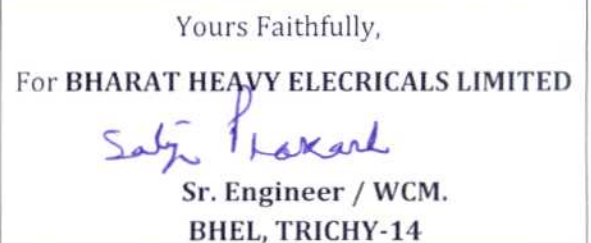 Yours Faithfully,
For BHARAT HEAVY ELECRICALS LIMITED
Prakash
Sr. Engineer / WCM.
BHEL, TRICHY-14